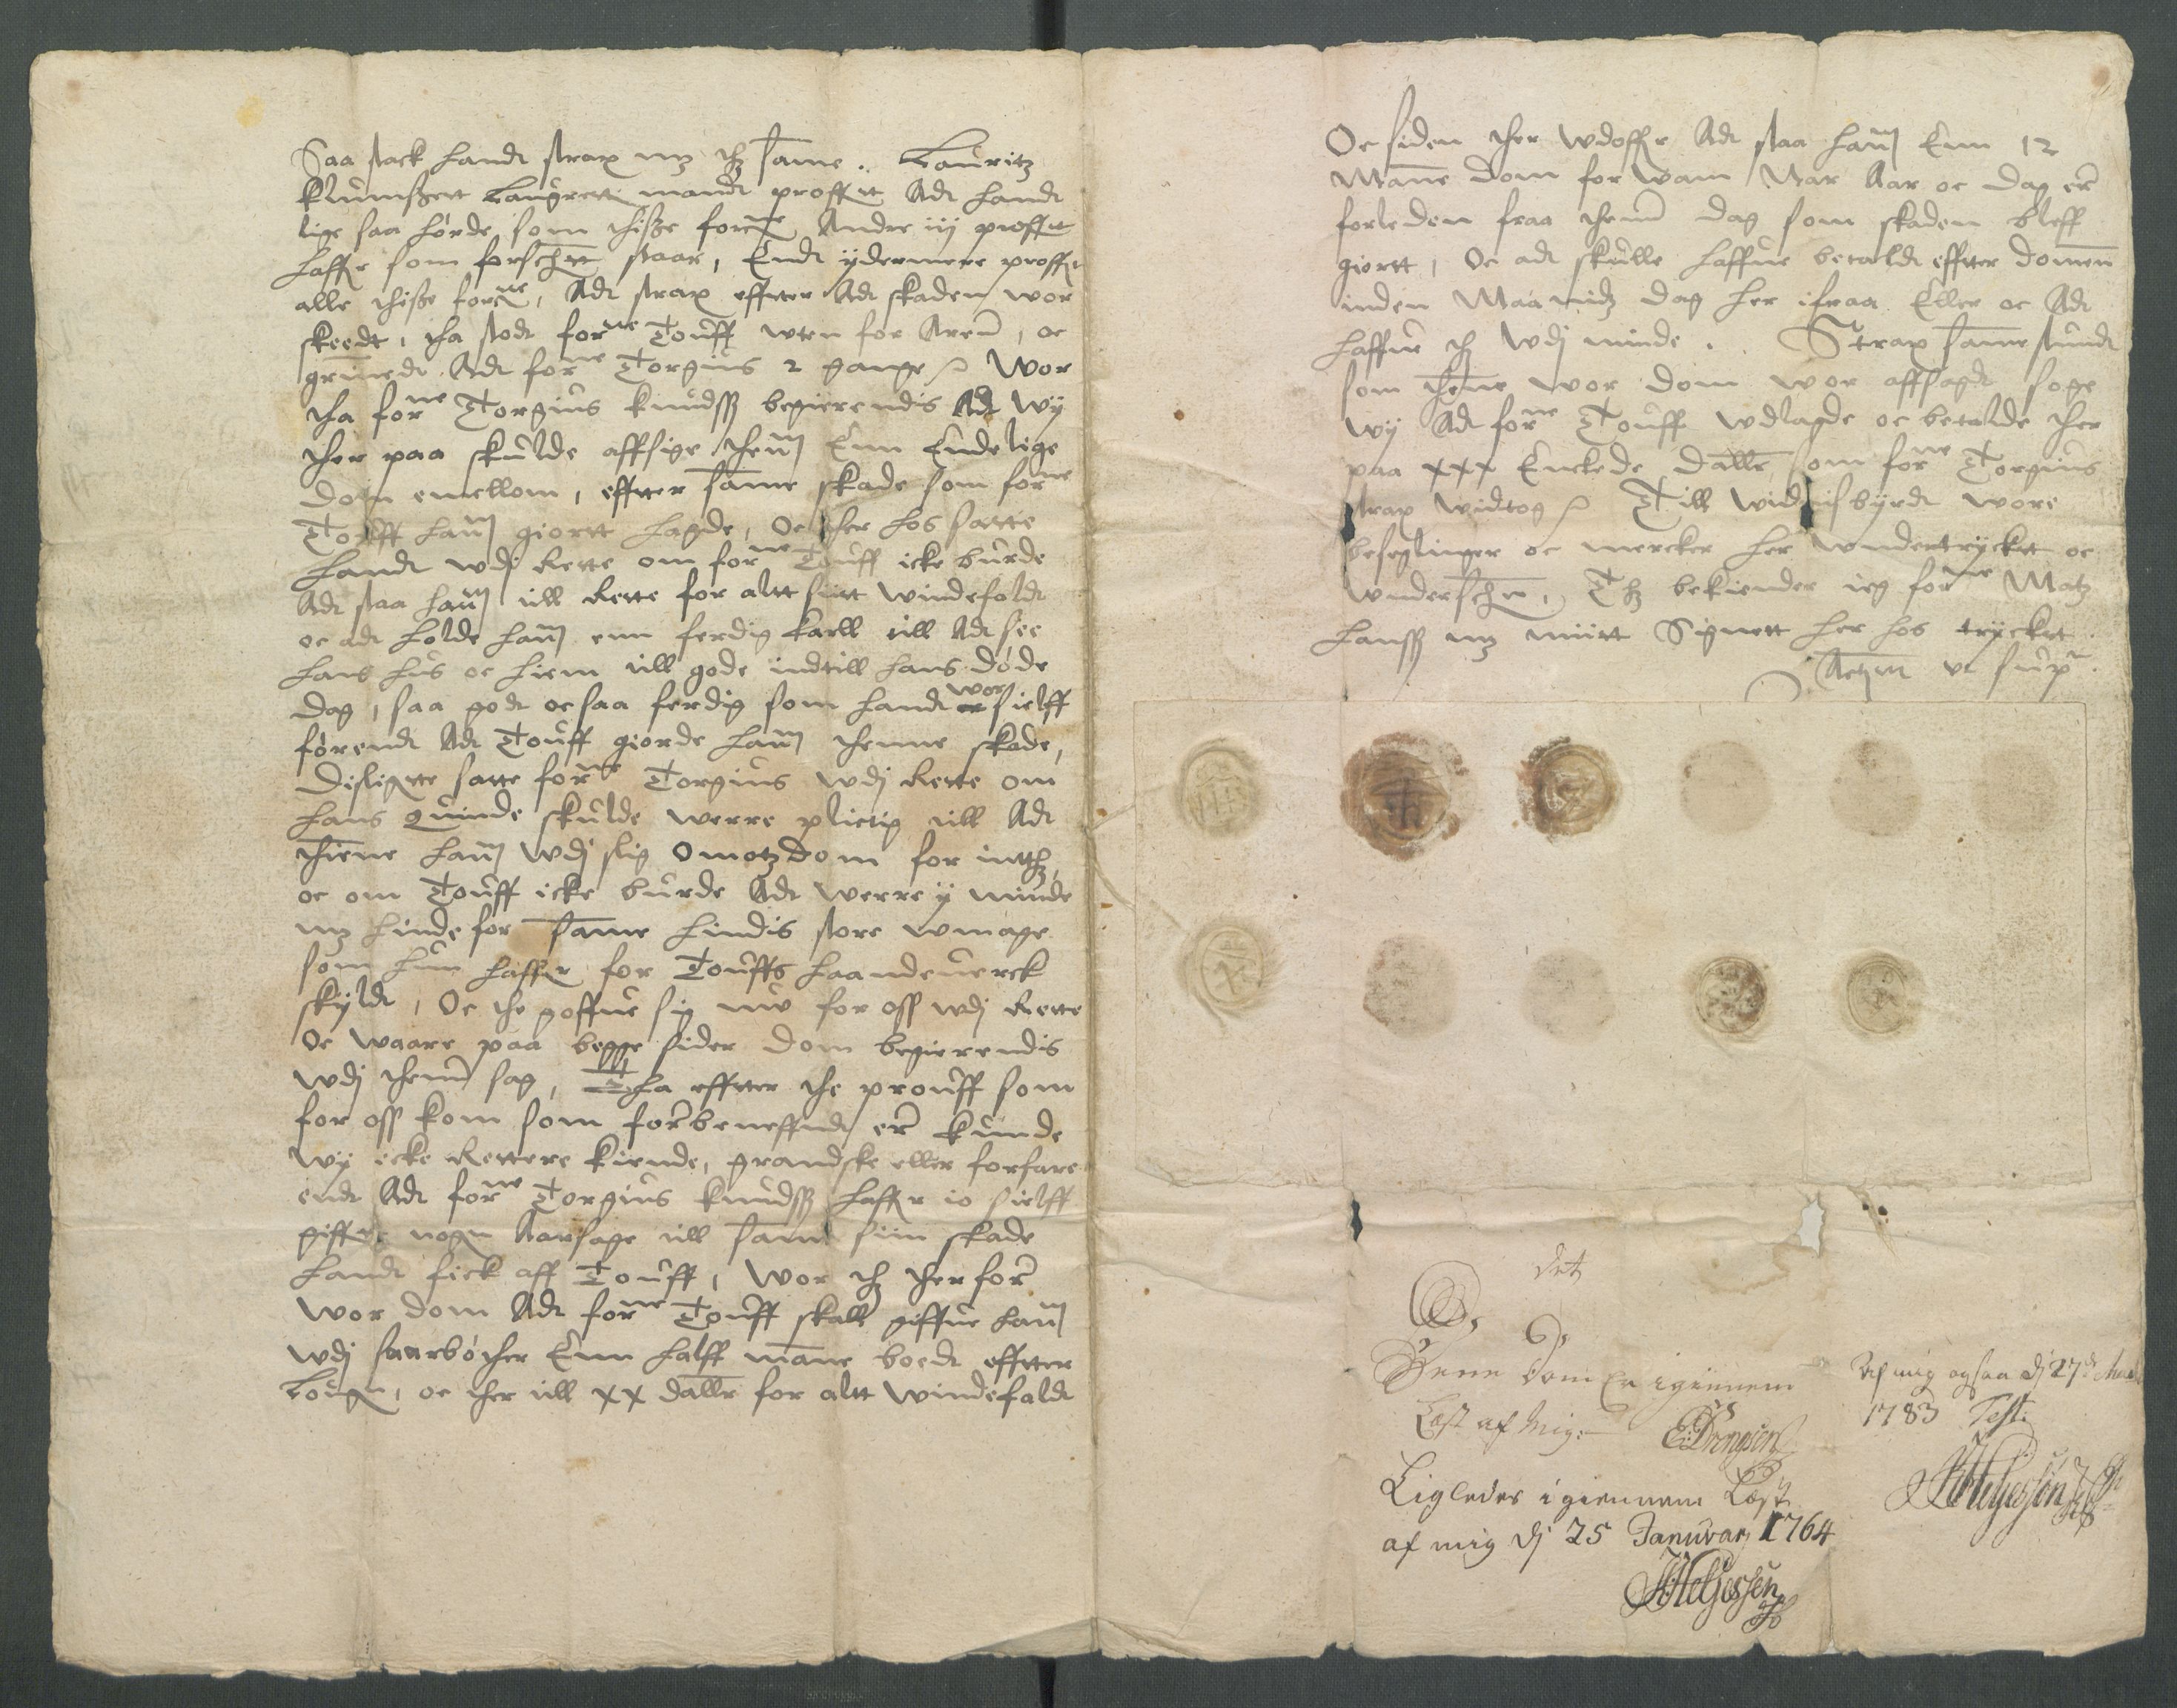 Saa stack handt strax mz thz same. Lauritz
Klumßett Laugrettmandt proffuit Adt handt
lige saa hørde som thiße forne Andre iij proffuit
haffr som forschrt staar, Endt ÿdermere proffr
alle thiße forne, Adt strax effter Adt skaden wor
skeedt, tha stodt forne Touff wten for Arem, oc
grinedt Adt forne Torgius 2 gange Wor
tha forne Torgius Knudssz begierendis Adt Wÿ
ther paa skulde affsige them Enn Endelige
Dom emellom, effter same skade som forne
Touff ham giortt hagde, Oc ther hos satte
handt wdj Rette om forne Touff icke burde
Adt staa ham till Rette for altt siitt windefaldt
oc adt holde ham enn ferdig karll till Adt see
hans hus oc hiem till gode indtill hans døde
Dag, saa godt oc saa ferdig som handt wor sielff
førendt Adt Touff giorde ham thenne skade,
Disligeste satte forne Torgius wdj Rette om
hans Quinde skulde werre plictig till Adt
thiene ham wdj slig Omotzdom for intthz,
oc om Touff icke burde Adt werre ÿ minde
mz hinde for same hindis store wmage
som hun haffr for Touffs haandeuerck
skÿldt, Oc the goffue sig nw for oss wdj Rette
Oc waare paa begge sider dom begierendis
wdj them sag, Tha effter the prouff som
for oss kom som forbeneffndt er kunde
wÿ icke Rettere kiende, grandske eller forfare
endt Adt forne Torgius Knudssz haffr io sielff
giffuet nogn Aarsage till sam siin skade
handt fick aff Touff, Wor thz therfor
Wor dom Adt forne Touff skall giffue ham
wdj saarbøther Enn halff mane boedt effter
Lougn, oc ther till xx dallr for altt windefaldt
Oc siden ther wdoffr Adt staa ham Enn 12
Mane Dom for wam Naar Aar oc Dag er
forleden fraa them dag som skaden bleff
giortt, Oc adt skulle haffue betaldt effter domen
inden Maanidz dag her ifraa Eller oc Adt
haffue thz wdj minde. Strax same stundt
som thene wor dom wor affsagdt soge
wÿ Adt forne Touff wdlagde oc betalde ther
paa xxx Enckede Dallr som forne Torgius
strax widtog Till widnisbÿrdt wore
beseglinger oc mercker her wndertrÿckt oc
wnderschn, Thz bekiender ieg forne Matz
hanssz mz miitt Signett her hos trÿckt
Actum vt supr.
det
Denne Dom Er igiennem
Læst af Mig.
Ligledes igiennem Læst
af mig dj 25 Januarj 1764
Af mig ogsaa dj 27de
1783 Test: